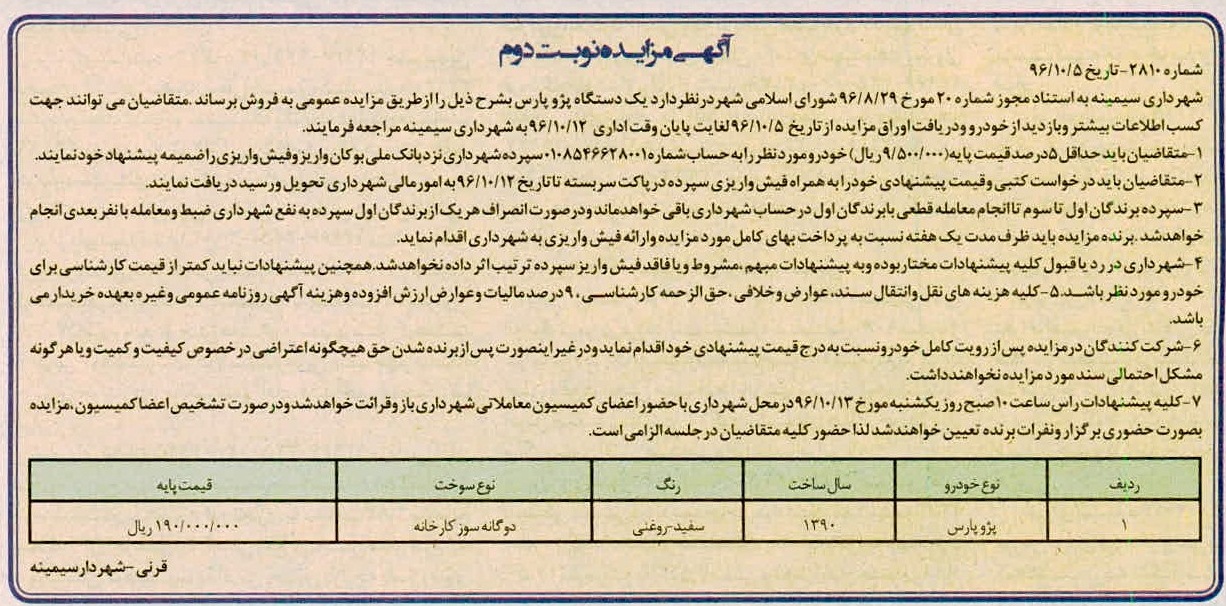 آگهی مزایده نوبت دوم
شماره ۲۸۱۰-تاریخ ۹۶/۱۰/۵
شهرداری سیمینه به استناد مجوز شماره ۲۰ مورخ ۹۶/۸/۲۹ شورای اسلامی شهر در نظر دارد یک دستگاه پژو پارس بشرح ذیل را از طریق مزایده عمومی به فروش برساند .متقاضیان می توانند جهت
کسب اطلاعات بیشتر و بازدید از خودرو و دریافت اوراق مزایده از تاریخ ۹۶/۱۰/۵ لغایت پایان وقت اداری ۹۶/۱۰/۱۲ به شهرداری سیمینه مراجعه فرمایند.
۱-متقاضیان باید حداقل ۵درصد قیمت پایه(۹/۵۰۰/۰۰۰ ریال) خودرو مورد نظر را به حساب شماره ۰۱۰۸۵۴۶۶۲۸۰۰۱ سپرده شهرداری نزد بانک ملی بوکان واریز و فیش واریزی را ضمیمه پیشنهاد خود نمایند.
۲-متقاضیان باید درخواست کتبی و قیمت پیشنهادی خود را به همراه فیش واریزی سپرده در پاکت سربسته تا تاریخ ۹۶/۱۰/۱۲ به امور مالی شهرداری تحویل و رسید دریافت نمایند.
۳-سپرده برندگان اول تا سوم تا انجام معامله قطعی با برندگان اول در حساب شهرداری باقی خواهد ماند و در صورت انصراف هر یک از برندگان اول سپرده به نفع شهرداری ضبط و معامله با نفر بعدی انجام
خواهد شد .برنده مزایده باید ظرف مدت یک هفته نسبت به پرداخت بهای کامل مورد مزایده و ارائه فیش واریزی به شهرداری اقدام نماید.
۴-شهرداری در رد یا قبول کلیه پیشنهادات مختار بوده و به پیشنهادات مبهم ،مشروط و یا فاقد فیش واریز سپرده ترتیب اثر داده نخواهد شد.همچنین پیشنهادات نباید کمتر از قیمت کارشناسی برای
خودرو مورد نظر باشد.۵-کلیه هزینه های نقل و انتقال سند، عوارض و خلافی ،حق الزحمه کارشناسی ،۹درصد مالیات و عوارض ارزش افزوده و هزینه آگهی روزنامه عمومی و غیره بعهده خریدار می
باشد.
۶-شرکت کنندگان در مزایده پس از رویت کامل خودرو نسبت به درج قیمت پیشنهادی خود اقدام نماید و در غیر اینصورت پس از برنده شدن حق هیچگونه اعتراضی در خصوص کیفیت و کمیت و یا هر گونه
مشکل احتمالی سند مورد مزایده نخواهند داشت.
۷-کلیه پیشنهادات راس ساعت ۱۰ صبح روز یکشنبه مورخ ۹۶/۱۰/۱۳ در محل شهرداری با حضور اعضای کمیسیون معاملاتی شهرداری باز و قرائت خواهد شد و در صورت تشخیص اعضا کمیسیون ،مزایده
بصورت حضوری برگزار و نفرات برنده تعیین خواهند شد لذا حضور کلیه متقاضیان در جلسه الزامی است.
ردیف نوع خودرو سال ساخت رنگ نوع سوخت قیمت پایه
۱ پژو پارس ۱۳۹۰ سفید-روغنی دوگانه سوز کارخانه ۱۹۰/۰۰۰/۰۰۰ ریال
قرنی -شهردار سیمینه